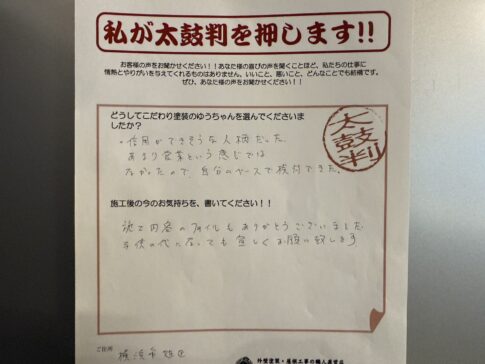 私が太鼓判を押します!!
お客様の声をお聞かせください！！あなた様の喜びの声を聞くことほど、私たちの仕事に
情熱とやりがいを与えてくれるものはありません。いいこと、悪いこと、どんなことでも結構です。
ぜひ、あなた様の声をお聞かせください！！
どうしてこだわり塗装のゆうちゃんを選んでくださいま
したか？
太鼓判
・信用ができそうな人柄だった。
あまり営業という感じでは
なかったので、自分のペースで検討できた。
施工後の今のお気持ちを、書いてください！！
施工内容のファイルもありがとうございました
子供の代になっても宜しくお願い致します
ご住所
横浜市旭区
外壁塗装・屋根工事の職人直営店